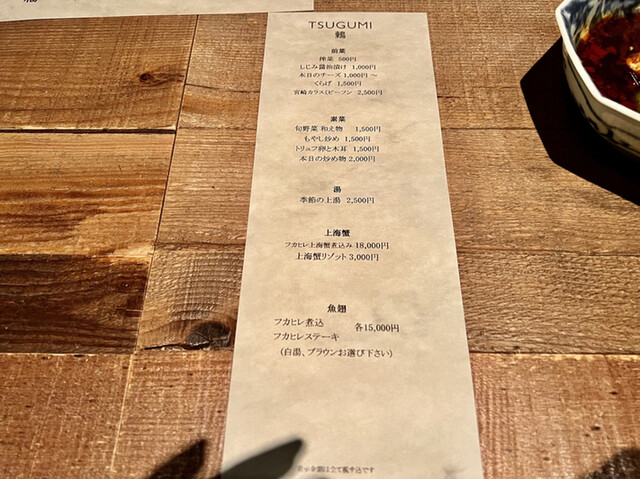 TSUGUMI
鶫
前菜
搾菜 500円
しじみ醤油漬け 1,000円
本日のチーズ 1,000円 〜
くらげ 1,500円
宮崎カラスミビーフン 2,500円
素菜
旬野菜 和え物 1,500円
もやし炒め 1,500円
トリュフ卵と木耳 1,500円
本日の炒め物 2,000円
湯
季節の上湯 2,500円
上海蟹
フカヒレ上海蟹煮込み 18,000円
上海蟹リゾット 3,000円
魚翅
フカヒレ煮込 各15,000円
フカヒレステーキ
(白湯、ブラウンお選び下さい)